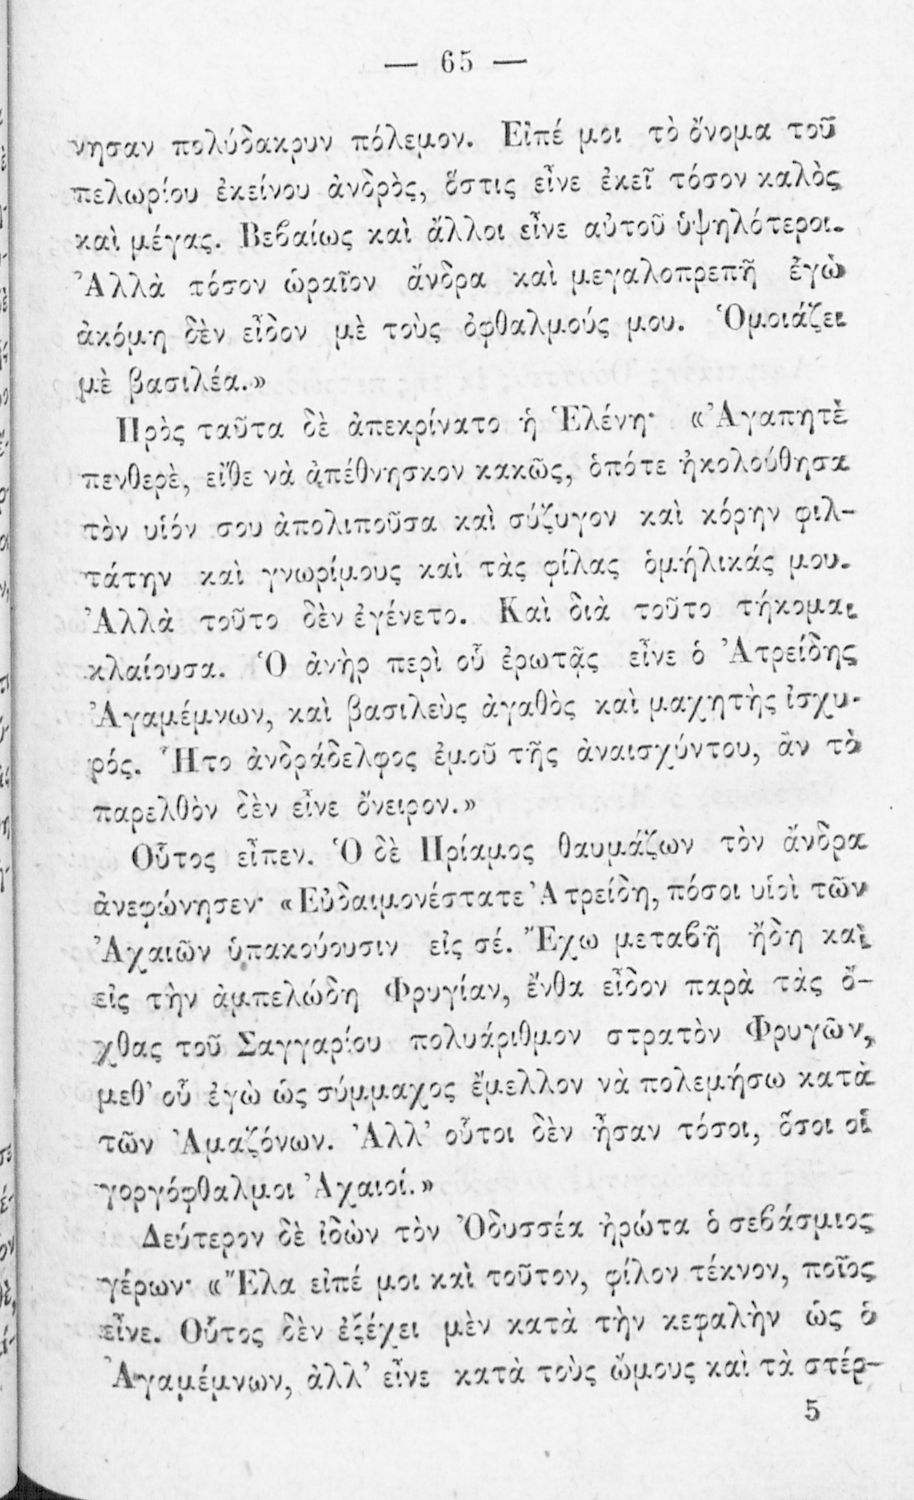 — 65 —
νησαν πολύδακρυν πόλεμον. Εἰπέ μοι τὸ ὄνομα τοῦ
πελωρίου ἐκείνου ἀνδρὸς, ὅστις εἶνε ἐκεῖ τόσον καλὸς
καὶ μέγας. Βεβαίως καὶ ἄλλοι εἶνε αὐτοῦ ὑψηλότεροι.
Ἀλλὰ τόσον ὡραῖον ἄνδρα καὶ μεγαλοπρεπῆ ἐγὼ
ἀκόμη δὲν εἶδον μὲ τοὺς ὀφθαλμούς μου. Ὁμοιάζει
μὲ βασιλέα.»
Πρὸς ταῦτα δὲ ἀπεκρίνατο ἡ Ἑλένη· «Ἀγαπητὲ
πενθερὲ, εἴθε νὰ ἀπέθνησκον κακῶς, ὁπότε ἠκολούθησα
τὸν υἱόν σου ἀπολιποῦσα καὶ σύζυγον καὶ κόρην φιλ-
τάτην καὶ γνωρίμους καὶ τὰς φίλας ὁμήλικάς μου.
Ἀλλὰ τοῦτο δὲν ἐγένετο. Καὶ διὰ τοῦτο τήκομαι
κλαίουσα. Ὁ ἀνὴρ περὶ οὗ ἐρωτᾷς εἶνε ὁ Ἀτρείδης
Ἀγαμέμνων, καὶ βασιλεὺς ἀγαθὸς καὶ μαχητὴς ἰσχυ-
ρός. Ἦτο ἀνδράδελφος ἐμοῦ τῆς ἀναισχύντου, ἂν τὸ
παρελθὸν δὲν εἶνε ὄνειρον.»
Οὗτος εἶπεν. Ὁ δὲ Πρίαμος θαυμάζων τὸν ἄνδρα
ἀνεφώνησεν· «Εὐδαιμονέστατε Ἀτρείδη, πόσοι υἱοὶ τῶν
Ἀχαιῶν ὑπακούουσιν εἰς σέ. Ἔχω μεταβῆ ἤδη καὶ
εἰς τὴν ἀμπελώδη Φρυγίαν, ἔνθα εἶδον παρὰ τὰς ὄ-
χθας τοῦ Σαγγαρίου πολυάριθμον στρατὸν Φρυγῶν,
μεθ’ οὗ ἐγὼ ὡς σύμμαχος ἔμελλον νὰ πολεμήσω κατὰ
τῶν Ἀμαζόνων. Ἀλλ’ οὗτοι δὲν ἦσαν τόσοι, ὅσοι οἱ
γοργόφθαλμοι Ἀχαιοί.»
Δεύτερον δὲ ἰδὼν τὸν Ὀδυσσέα ἠρώτα ὁ σεβάσμιος
γέρων· «Ἔλα εἰπέ μοι καὶ τοῦτον, φίλον τέκνον, ποῖος
εἶνε. Οὗτος δὲν ἐξέχει μὲν κατὰ τὴν κεφαλὴν ὡς ὁ
Ἀγαμέμνων, ἀλλ’ εἶνε κατὰ τοὺς ὤμους καὶ τὰ στέρ-
5